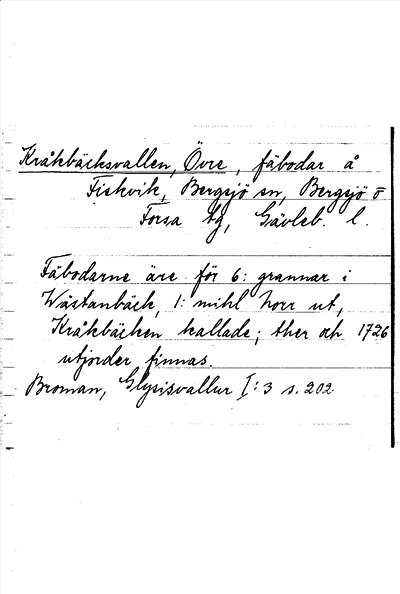 Kråkbäcksvallen, Övre, fäbodar å
Fiskvik, Bergsjö sn, Bergsjö o
Forsa tg, Gävleb. l.
Fäbodarne äre för 6: grannar i
Wästanbäck, 1: mihl norr ut,
Kråkbäcken kallade; ther och 1726
utjorder finnas.
Broman, Glysisvallur I:3 s. 202